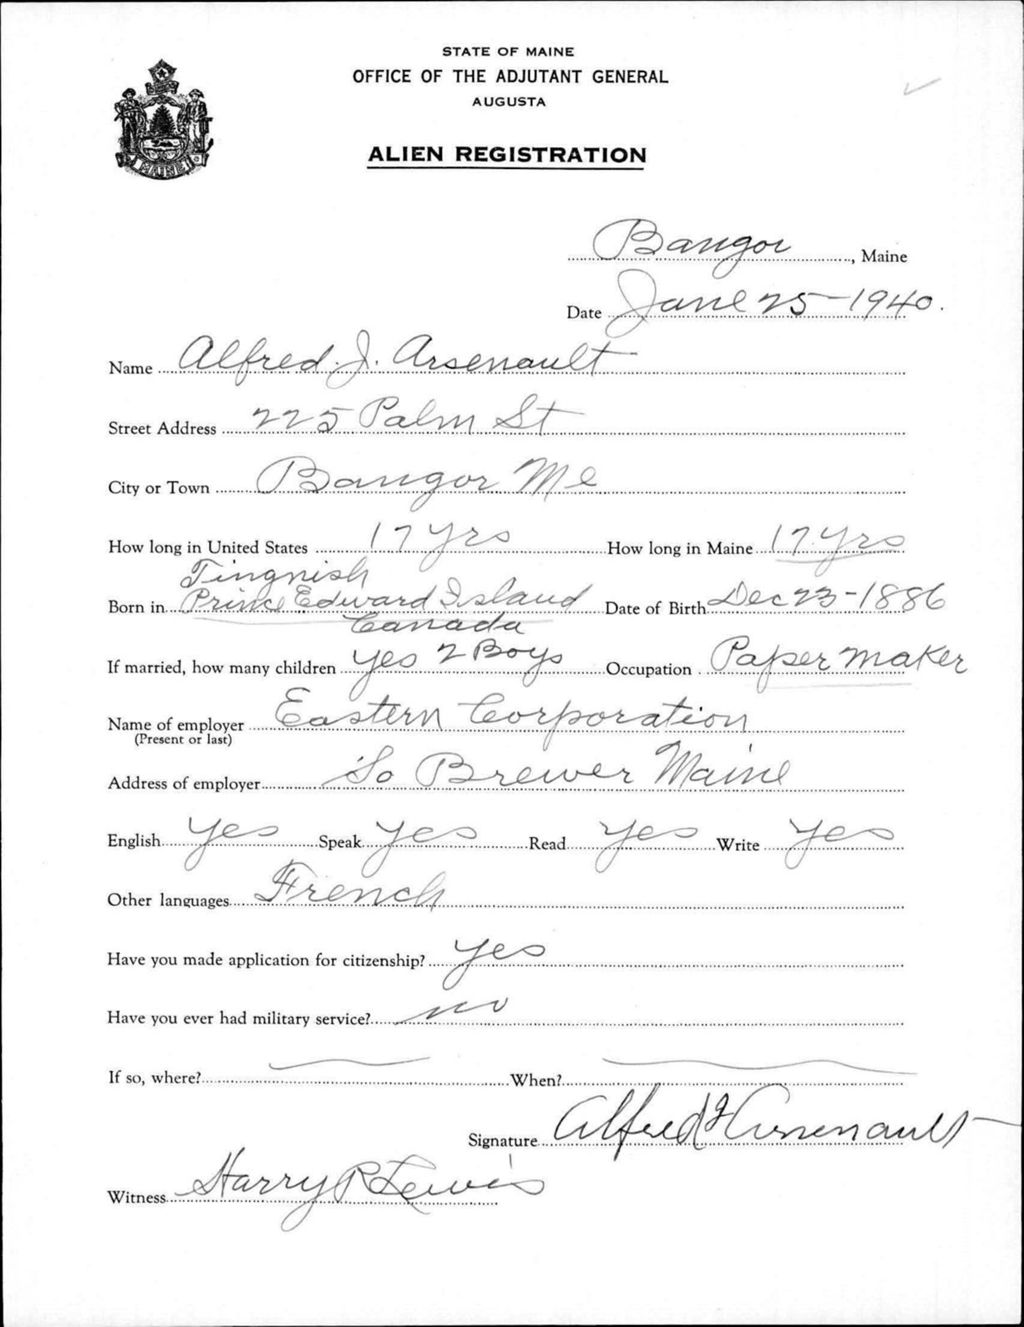 STATE OF MAINE
OFFICE OF THE ADJUTANT GENERAL
AUGUSTA
ALIEN REGISTRATION
MAINE
Bangor, Maine
Date June 25-1940.
Name Alfred. J. Arsenault
Street Address 225 Palm St
City or Town Bangor Me
How long in United States 17 Yrs How long in Maine 17 Yrs
Tingnish
Born in Prince Edward Island Date of Birth Dec 23-1886
Canada
If married, how many children yes 2 Boys Occupation Paper maker
Name of employer Eastern Corporation
(Present or last)
Address of employer So Brewer Maine
English yes Speak yes Read yes Write yes
Other languages French
Have you made application for citizenship? yes
Have you ever had military service? no
If so, where? When?
Signature Alfred J Arsenault
Witness Harry R Lewis